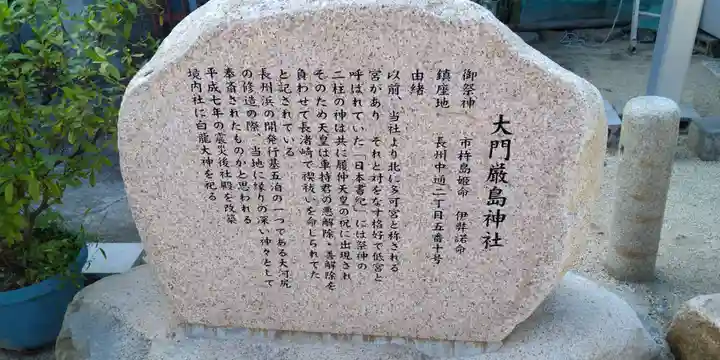 大門厳島神社
御祭神 市杵島姫命 伊弉諾命
鎮座地 長州中通二丁目五番十号
由緒
以前、当社より北に多可宮と称される
宮があり それと対をなす格好で低宮と
呼ばれていた「日本書紀」には祭神の
二柱の神は共に履仲天皇の祝に出現され
そのため天皇は車持君の悪解除・善解除を
負わせて長渚崎で禊祓いを命じられてた
と記されている
長州浜の開発行基五泊の一つである大河尻
の修造の際、当地に縁りの深い神々として
奉斎されたものかと思われる
平成七年の震災後社殿を改築
境内社に白龍大神を祀る